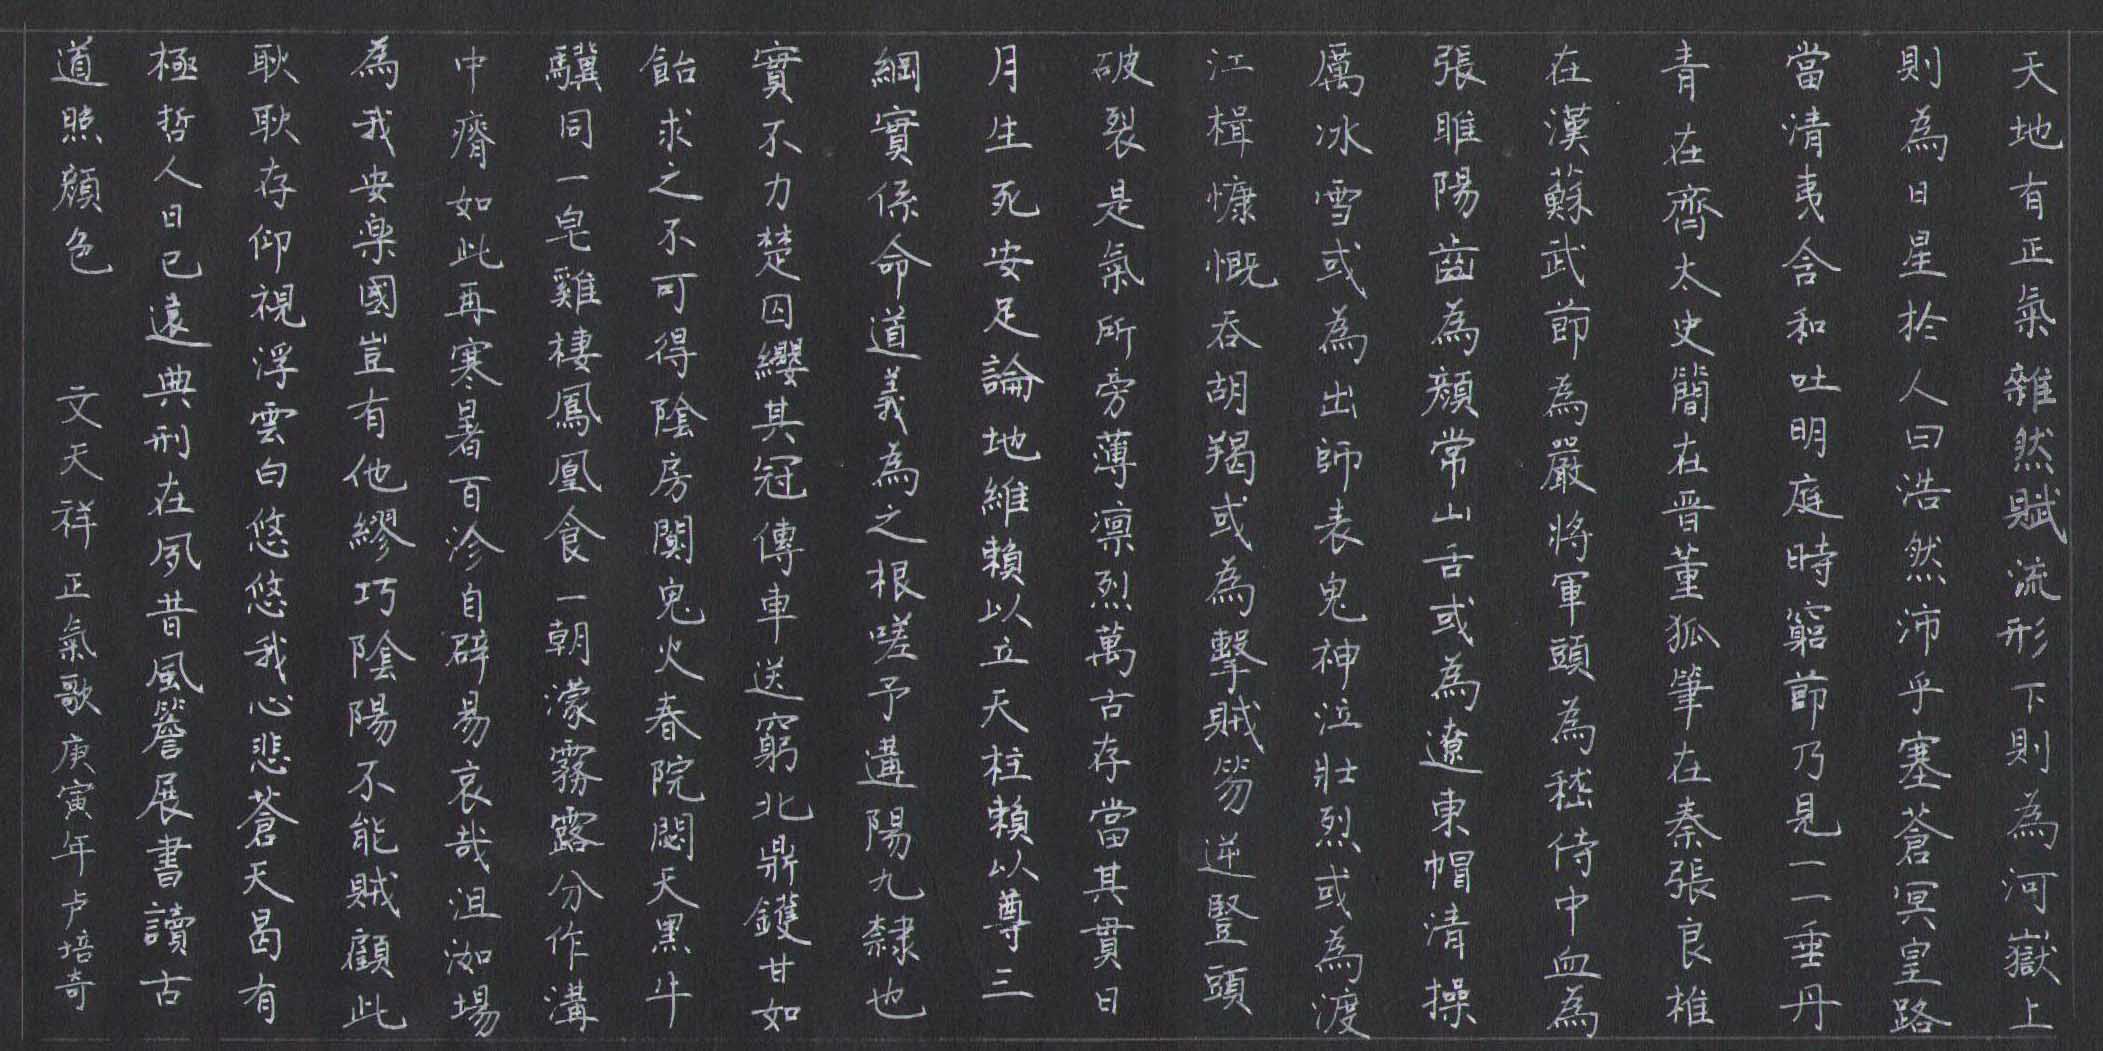 天地有正氣雜然賦流形下則為河嶽上
則為日星於人曰浩然沛乎塞蒼冥皇路
當清夷含和吐明庭時窮節乃見一一垂丹
青在齊太史簡在晋董狐筆在秦張良椎
在漢蘇武節為嚴將軍頭為嵇侍中血為
張睢陽齒為顏常山舌或為遼東帽清操
厲冰雪或為出師表鬼神泣壯烈或為渡
江楫慷慨吞胡羯或為擊賊笏逆豎頭
破裂是氣所旁薄凛烈萬古存當其貫日
月生死安足論地維賴以立天柱賴以尊三
綱實係命道義為之根嗟予遘陽九隸也
實不力楚囚纓其冠傳車送窮北鼎鑊甘如
飴求之不可得陰房闃鬼火春院閟天黑牛
驥同一皂雞棲鳳凰食一朝濛霧露分作溝
中瘠如此再寒暑百沴自辟易哀哉沮洳場
為我安樂國豈有他繆巧陰陽不能賊顧此
耿耿存仰視浮雲白悠悠我心悲蒼天曷有
極哲人日已遠典刑在夙昔風簷展書讀古
道照顏色 文天祥正氣歌庚寅年卢培奇